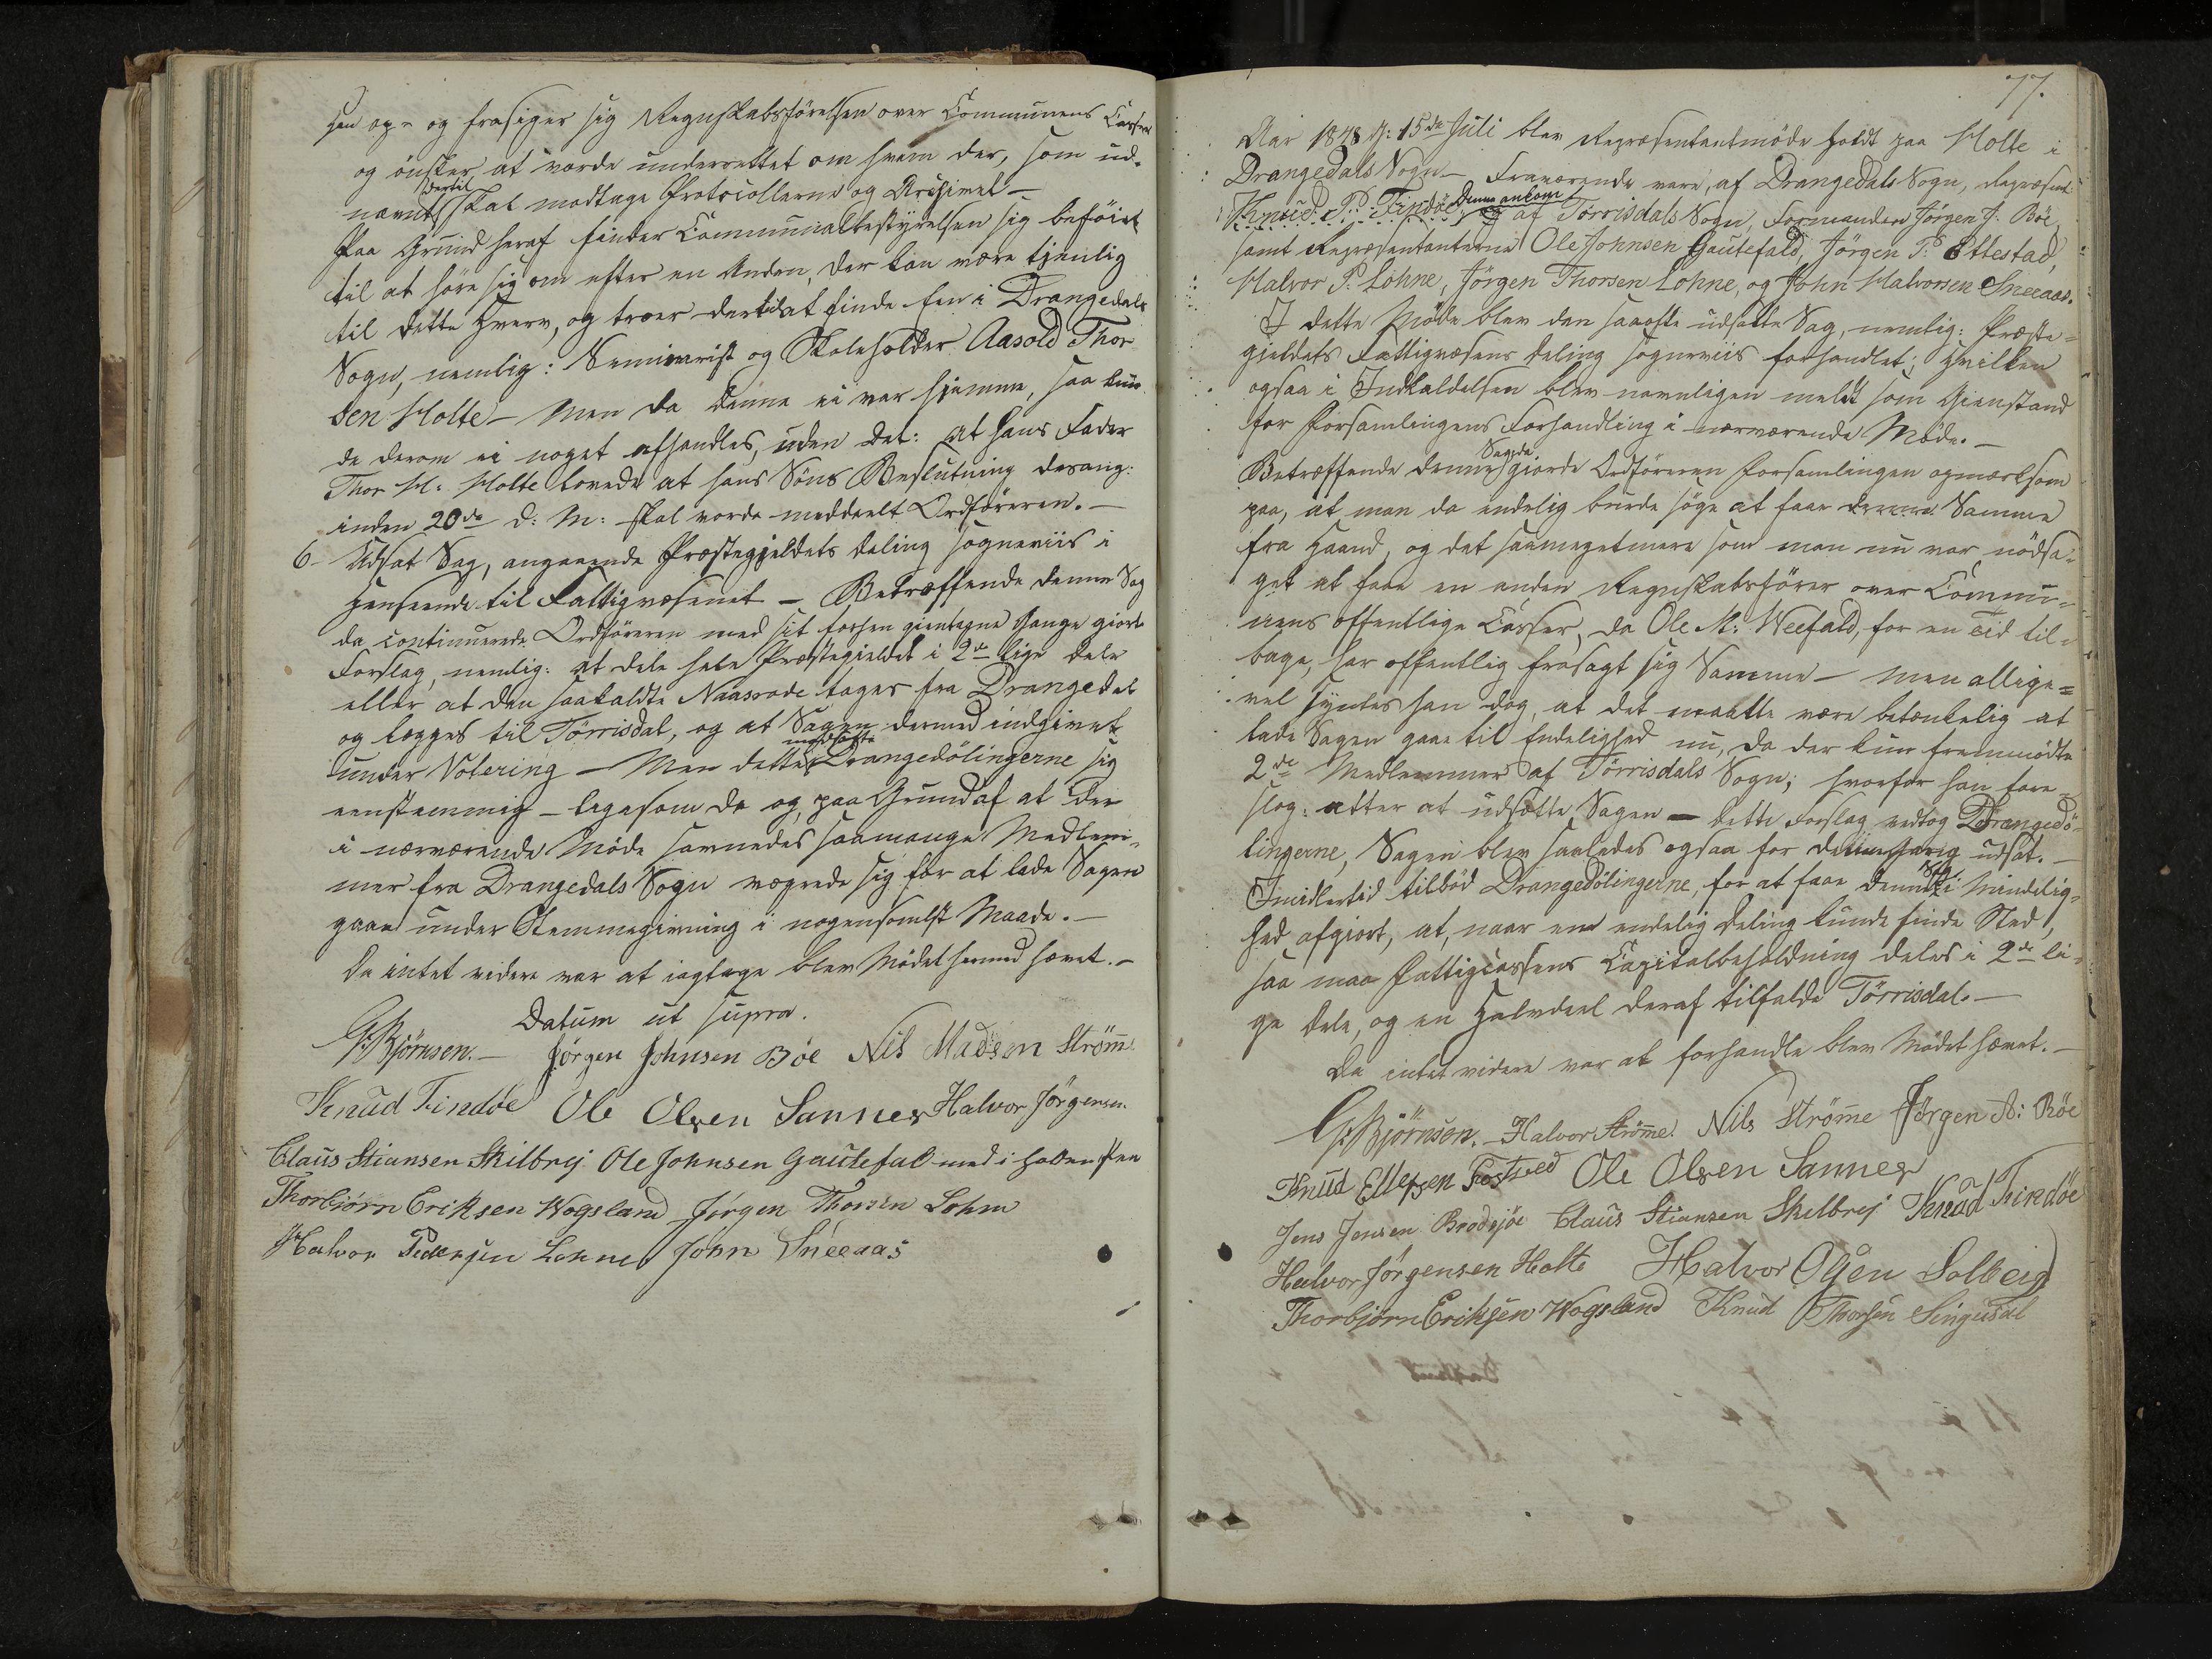 han op- og frasiger sig Regnskabsförelsen over Communens Casser
og önsker at vorde underrettet om hvem der, som ud-
dertil
nævnt skal modtage Protocollerne og Archivet -
Paa Grund heraf finder Communalbestyrelsen sig beföiet
til at höre sig om efter en Anden, der kan være tjenlig
til dette Hverv, og troer dertil at finde Een i Drangedals
Sogn, nemlig: Seminarist og Skoleholder Aasold Thor
sen Holte - Men da denne ei var hjemme, saa kun
de derom ei noget afhandles, uden det: at hans Fader
Thor H: Holte lovede at hans Söns Beslutning desang:
inden 20de d: M: skal vorde meddeelt Ordföreren. -
6 - Udsat Sag, angaaende Præstegjeldets Deling sogneviis i
Henseende til Fattigvæsenet - Betræffende denne Sag
da continuerede Ordföreren med sit forhen gientagne Gange giorte
Forslag, nemlig: at dele hele Præstegieldet i 2de lige Dele
eller at den saakaldte Naasrode tages fra Drangedal
og lægges til Törrisdal, og at Sagen dermed indgivet
under Votering - Men dette modsatte Drangedölingerne sig
eenstemmig - ligesom de og, paa Grund af at der
i nærværende Möde savnedes saamange Medlem-
mer fra Drangedals Sogn vægrede sig for at lade Sagen
gaae under Stemmegivning i nogensomhelst Maade. -
Da intet videre var at iagtage blev Mödet hermed hævet. -
Datum ut supra.
G. Björnsen. - Jörgen Johnsen Böe Nils Madsen Strömme
Knud Findöe Ole Olsen Sannes Halvor Jörgensen
Claus Stiansen Skilbrej Ole Johnsen Gautefal med i holden Pen
Thorbiörn Eriksen Wogsland Jörgen Thorsen Lohne
Halvor Pedersen Lohne John Sneeaas
77.
Aar 1848 d: 15de Juli blev Repræsentantmöde holdt paa Holte i
Drangedals Sogn - Fraværende vare, af Drangedals Sogn, Repræsent:
Knud P: Findöe, Denne ankom og af Törrisdals Sogn, Formanden Jörgen J: Böe,
samt Repræsentanterne Ole Johnsen Gautefald, Jörgen P: Ettestad,
Halvor P: Lohne, Jörgen Thorsen Lohne, og John Halvorsen Sneeaas.
I dette Möde blev den saaofte udsatte Sag, nemlig: Præste-
gjeldets Fattigvæsens Deling sogneviis forhandlet; hvilken
ogsaa i Indkaldelsen blev navnligen meldt som Gienstand
for Forsamlingens Forhandling i nærværende Möde. -
Betræffende denne Sag da giorde Ordföreren Forsamlingen opmærksom
paa, at man da endelig burde söge at faae Samme
fra Haand, og det saameget mere som man nu var nödsa-
get at faae en anden Regnskabsförer over Commu-
nens offentlige Casser, da Ole M: Weefald, for en Tid til-
bage, har offentlig frasagt sig Samme - men allige-
vel syntes han dog, at det maatte være betænkelig at
lade Sagen gaae til Endelighed nu, da der kun fremmödte
2de Medlemmer af Törrisdals Sogn; hvorfor han fore-
slog: atter at udsætte Sagen - dette Forslag vedtog Drangedö-
lingerne, Sagen blev saaledes ogsaa for denne Gang udsat. -
Imidlertid tilböd Drangedölingerne, for at faae denne Sag i Mindelig-
hed afgiort, at, naar en endelig Deling kunde finde Sted,
saa maa Fattigcassens Capitalbeholdning deles i 2de li-
ge Dele, og en Halvdeel deraf tilfalde Törrisdal. -
Da intet videre var at forhandle blev Mödet hævet. -
G. Björnsen. - Halvor Strömme. Nils Strömme Jörgen A: Böe
Knud Ellefsen Fostved Ole Olsen Sannes
Jens Jensen Brödsjöe Claus Stiansen Skelbrej Knud Findöe
Halvor Jörgensen Holte Halvor Olsen Solbeig
Thorbjörn Eriksen Wogsland Knud Thorsen Singusdal